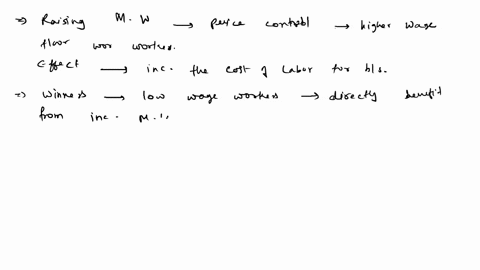 => Raising M.W → price control → higher wage
floor wor workers.
Effect → inc. the cost of labor for b/s.
=> Winners → low wage workers → directly benefit
from inc. M.